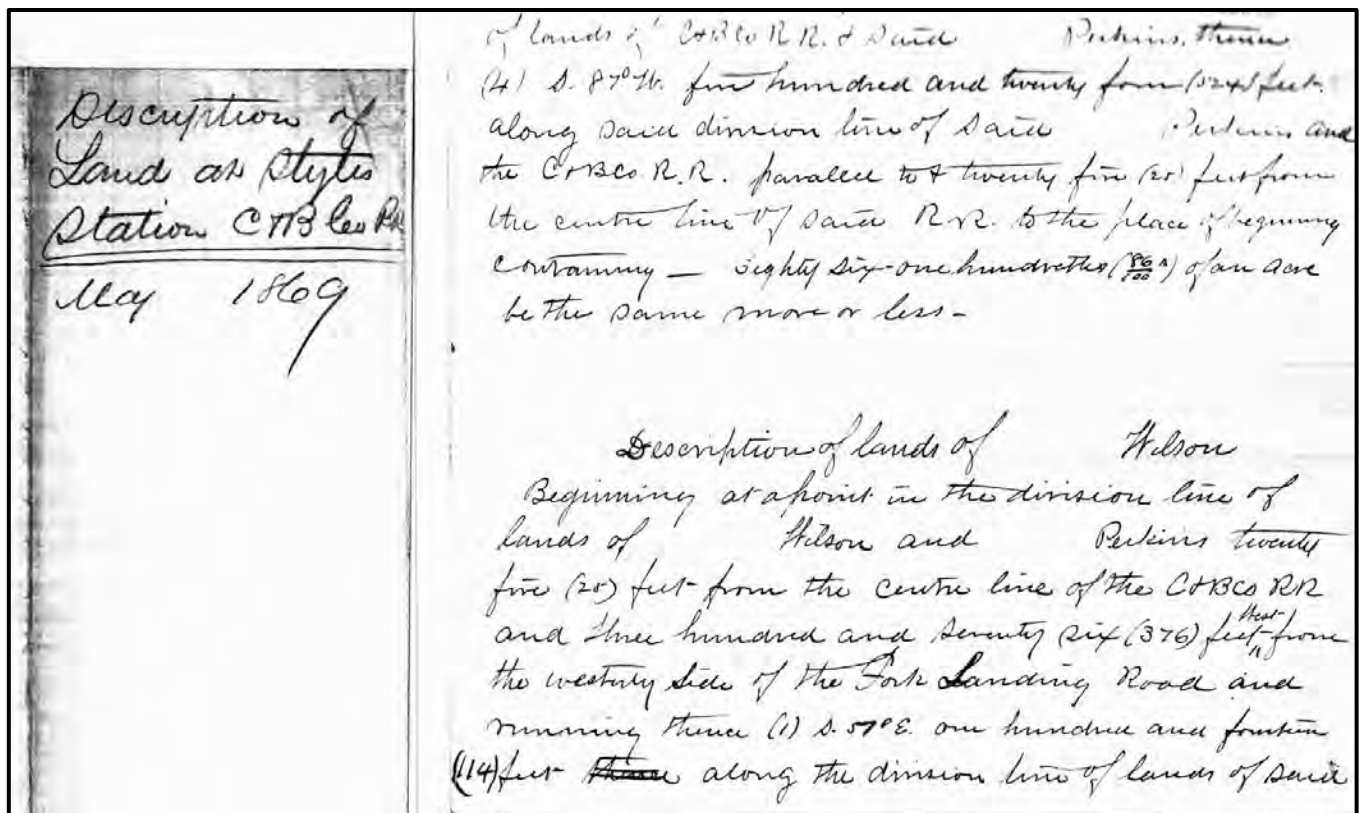 Description of
Land at Styles
Station C&BCo RR
May 1869
of lands of C&BCo R.R. & said Perkins, thence
(4) S. 87° W. five hundred and twenty four (524) feet
along said division line of said Perkins and
the C&BCo. R.R. paralell to & twenty five (25) feet from
the centre line of said R.R. to the place of beginning
containing — eighty six-one hundredths (86/100 ths) of an acre
be the same more or less —
Description of lands of Wilson
Beginning at a point in the division line of
lands of Wilson and Perkins twenty
five (25) feet from the centre line of the C&BCo RR
and three hundred and seventy six (376) feet West from
the westerly side of the Fork Landing Road and
running thence (1) S. 57° E. one hundred and fourteen
(114) feet along the division line of lands of said